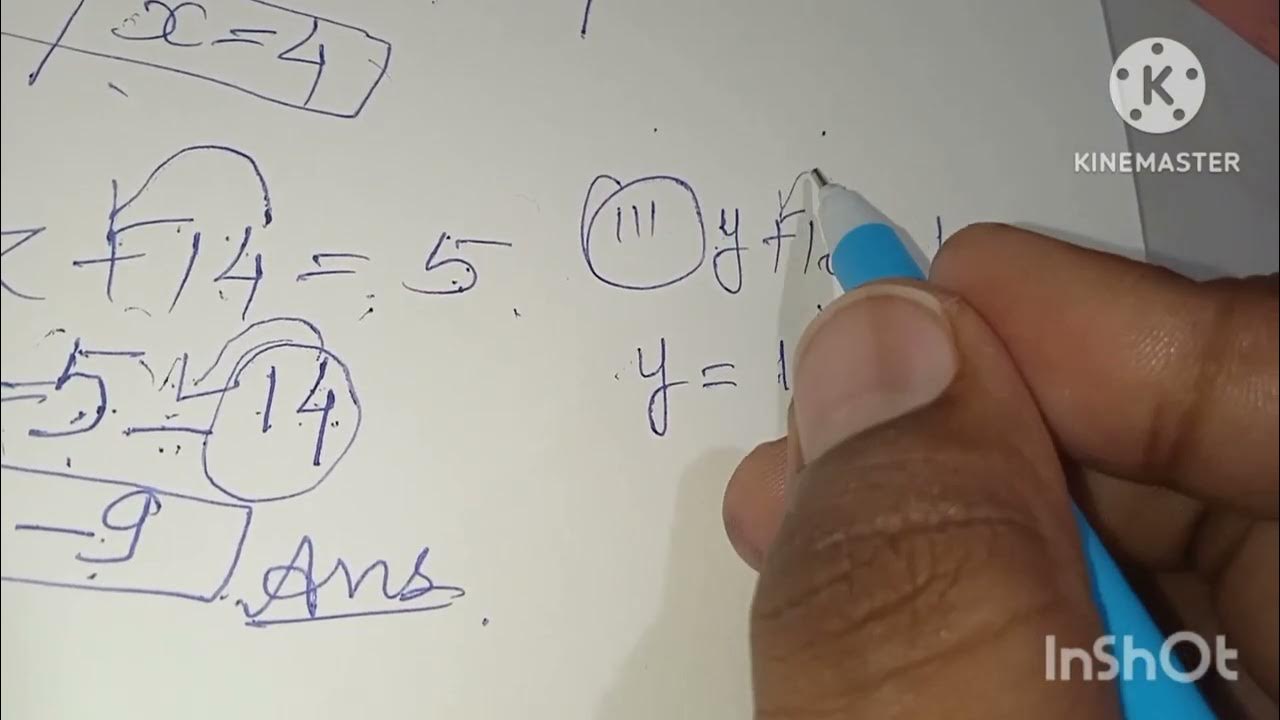 x=4
+14 = 5
=5-14
-9
Ans
III y+1
y = 1
KINEMASTER
InShOt